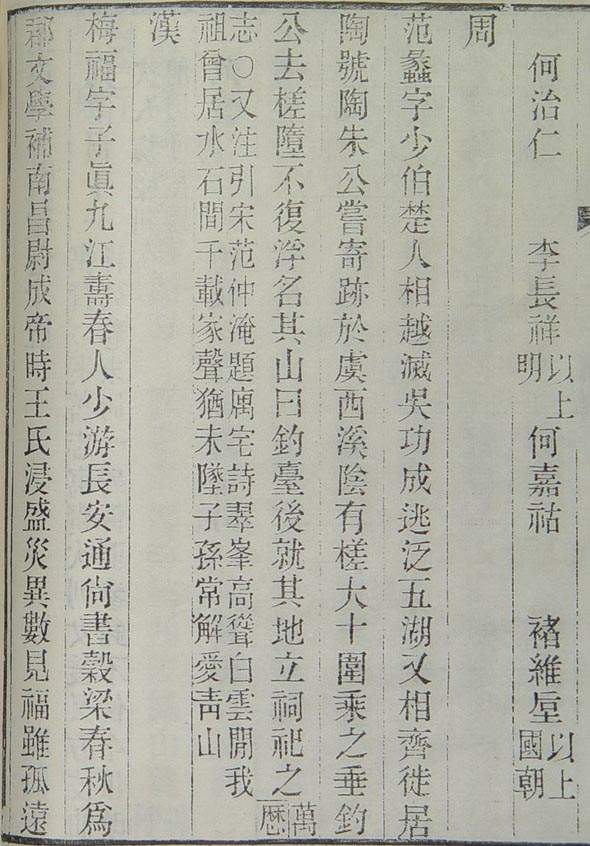 何治仁 李長祥以上明 何嘉祜 褚維垕以上國朝
周
范蠡字少伯楚人相越滅吳功成逃泛五湖又相齊徙居
陶號陶朱公嘗寄跡於虞西溪陰有槎大十圍乘之垂釣
公去槎墮不復浮名其山曰釣臺後就其地立祠祀之萬歷
志〇又注引宋范仲淹題厲宅詩翠峯高聳白雲閒我
祖曾居水石間千載家聲猶未墜子孫常解愛靑山
漢
梅福字子眞九江壽春人少游長安通尙書穀梁春秋爲
郡文學補南昌尉成帝時王氏浸盛災異數見福雖孤遠